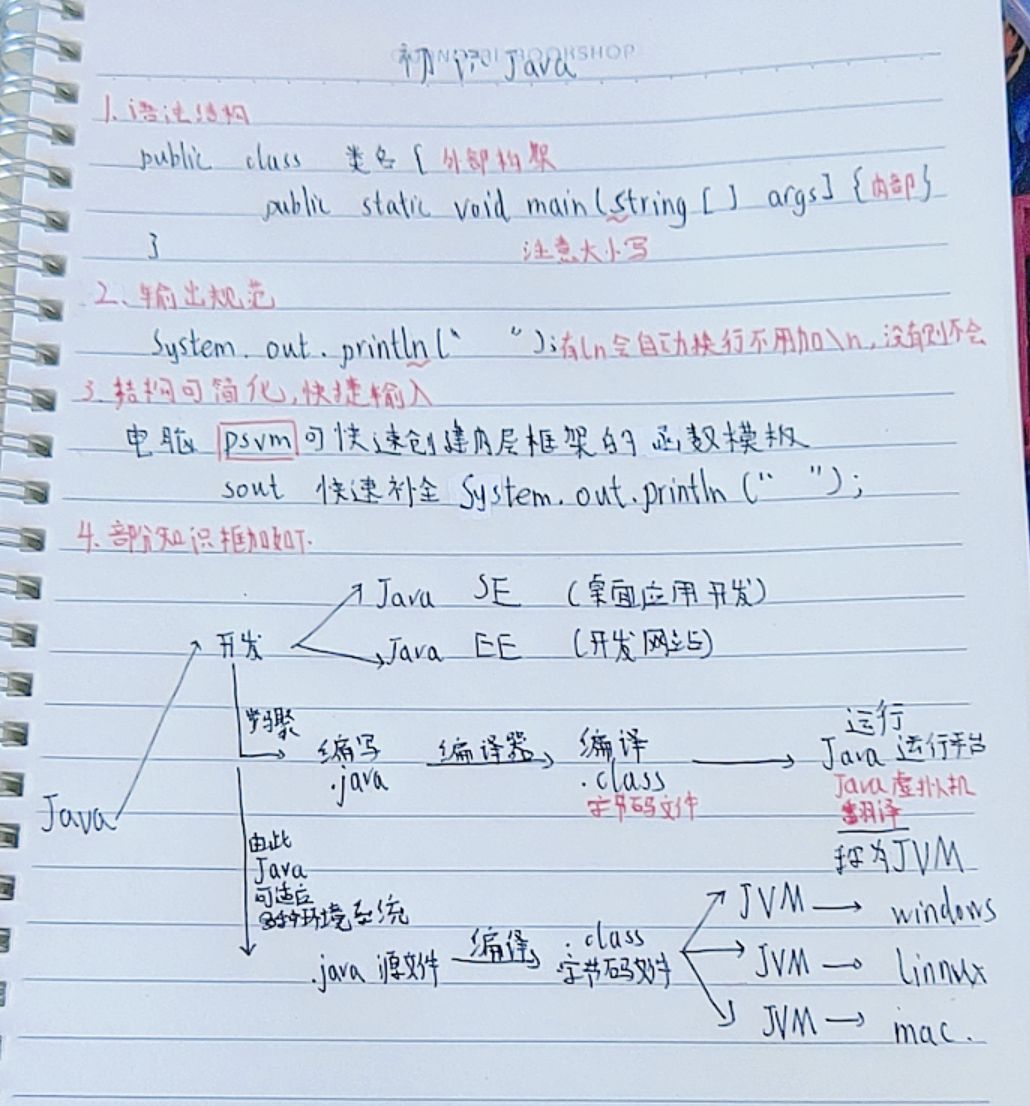 初识Java
1. 语法结构
public class 类名 { 外部构架
public static void main (string [ ] args] {内部}
}
注意大小写
2、输出规范
System. out. println (“ ”);有ln会自动换行不用加\n,没有则不会
3. 结构可简化,快捷输入
电脑 psvm 可快速创建内层框架的函数模板
sout 快速补全 System. out. println (“ ”);
4. 部分知识框加如下.
Java SE (桌面应用开发)
开发
Java EE (开发网站)
步骤
编写
.java
编译器
编译
.class
字节码文件
运行
Java 运行平台
Java虚拟机
翻译
称为JVM
Java
由此
Java
可适应
多种环境系统
.java 源文件
编译
.class
字节码文件
JVM → windows
JVM → linnux
JVM → mac.